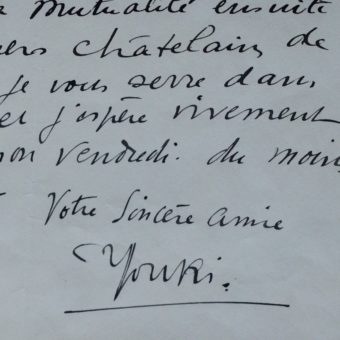 Mutualité ensuite
ers châtelain, de
je vous serre dans
et j'espère vivement
non vendredi. du moins
Votre Sincère amie
Youki.